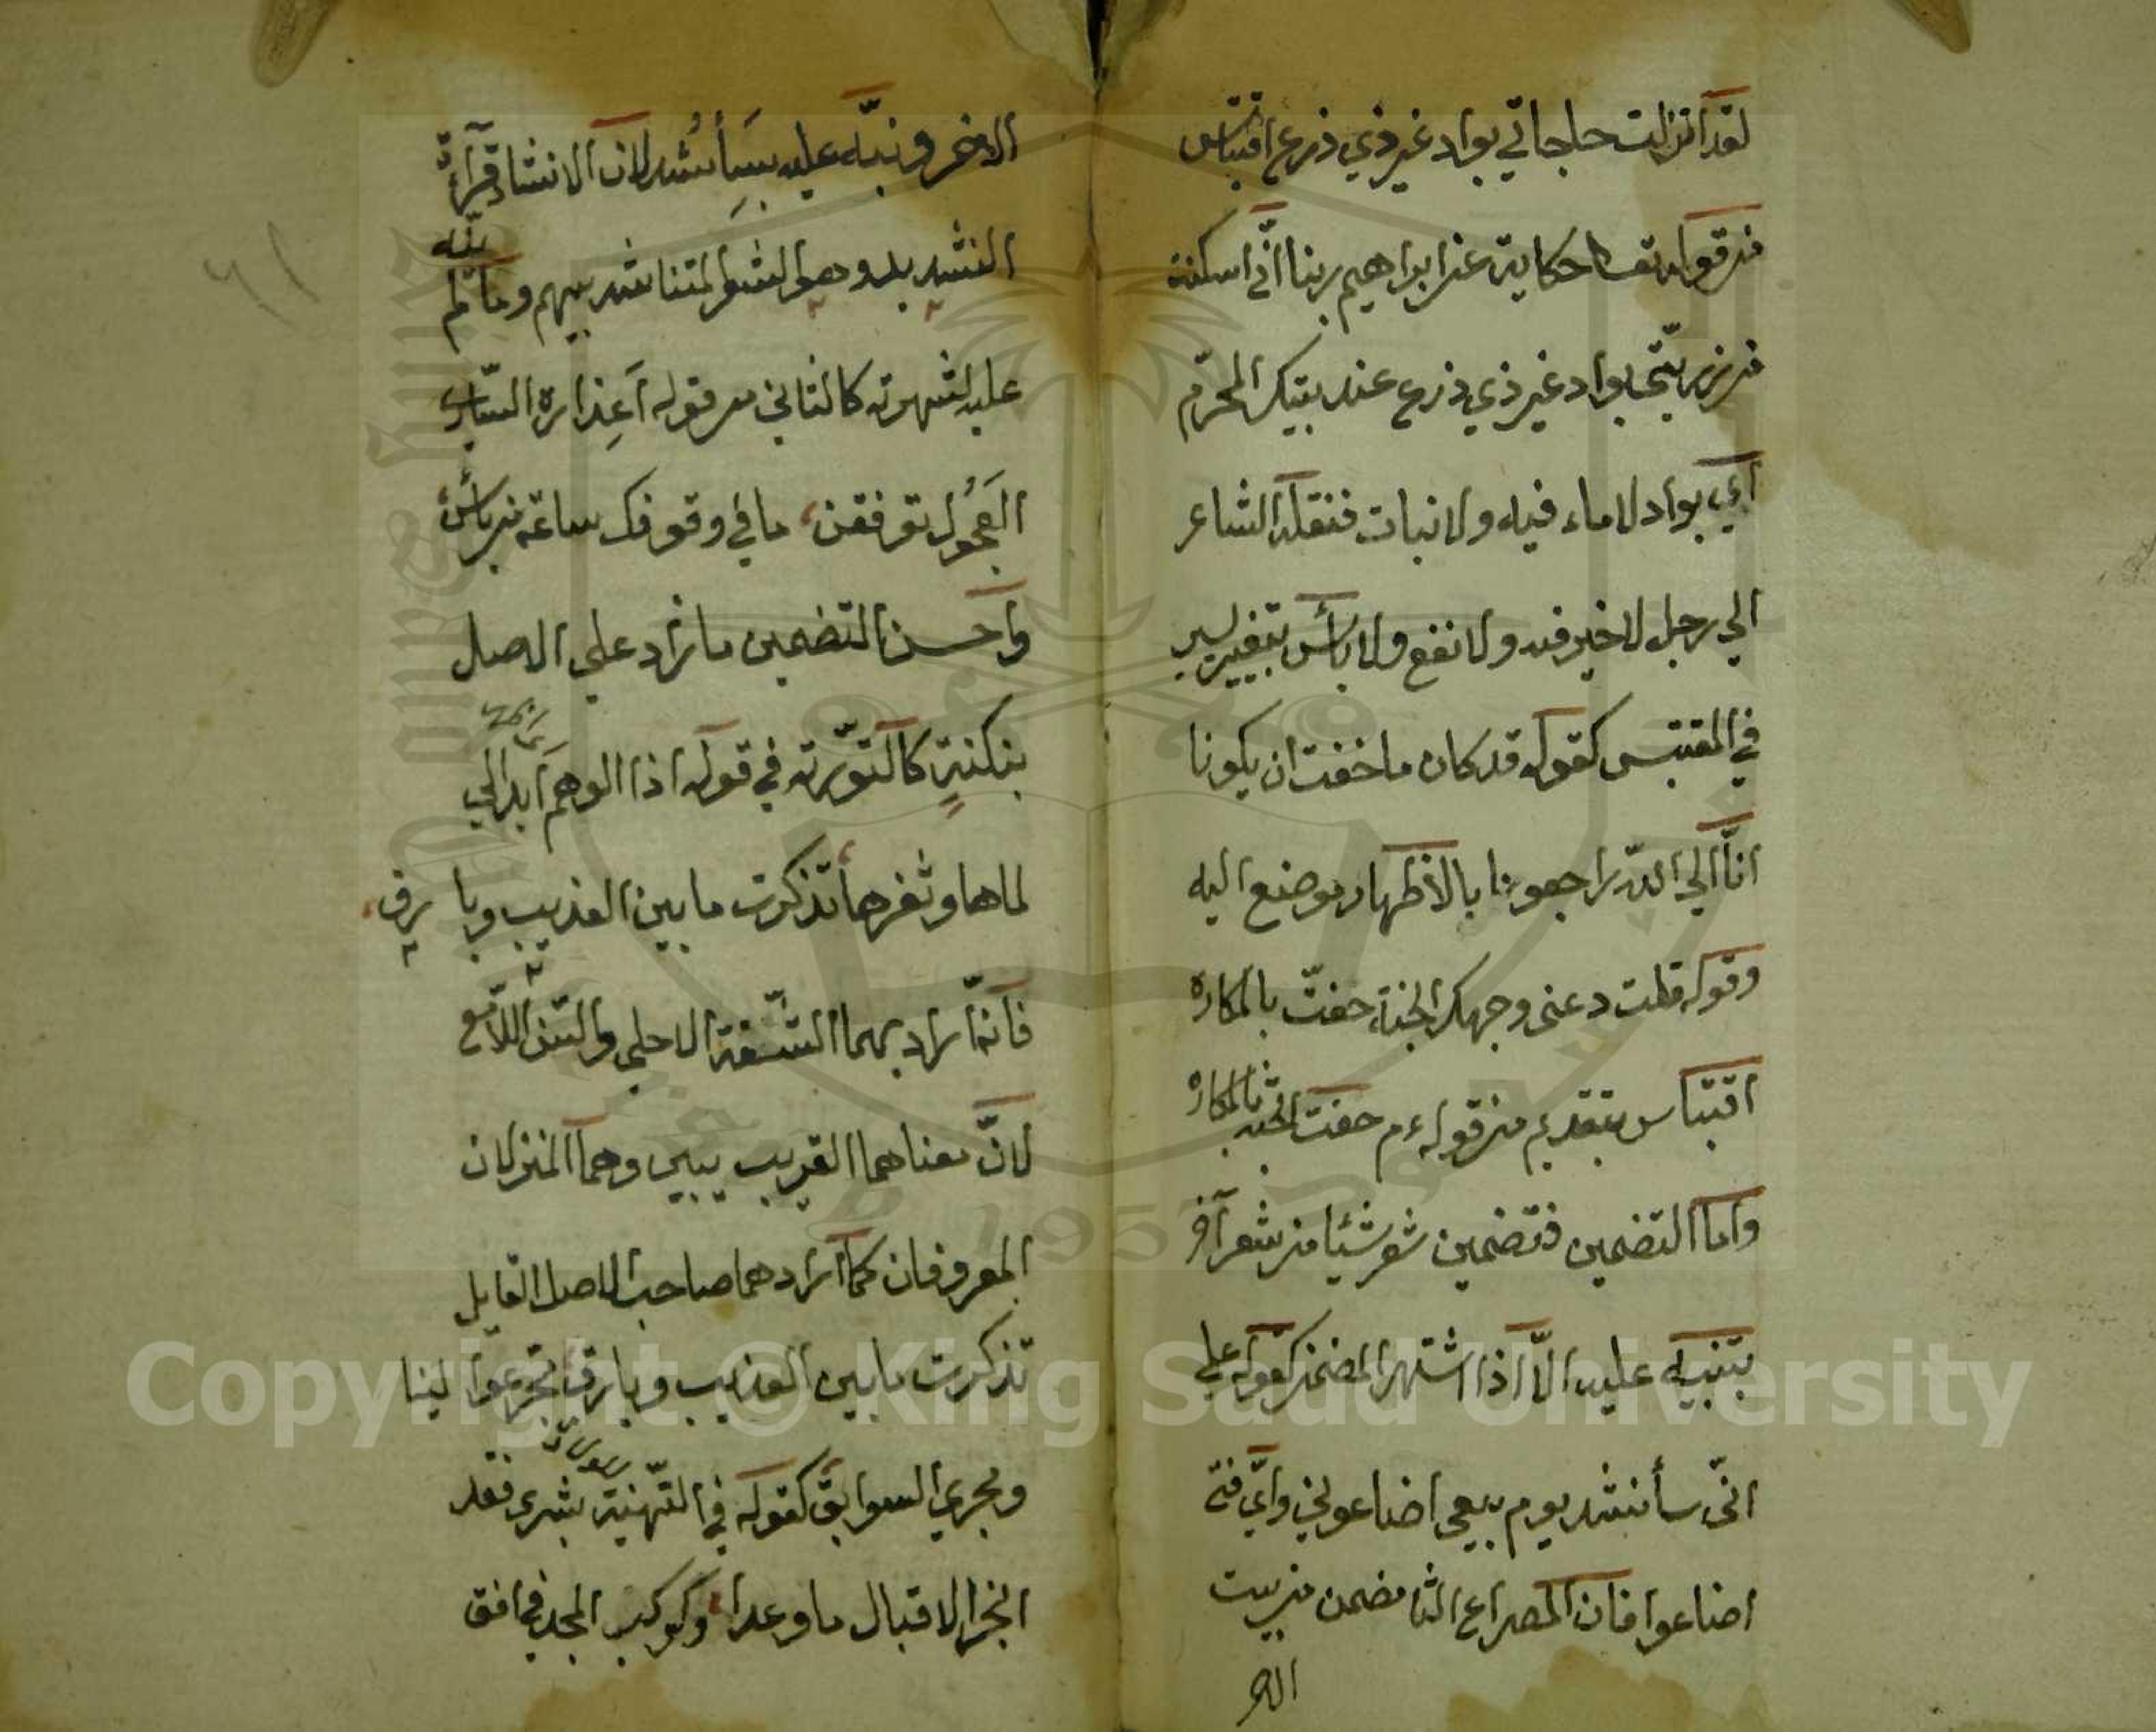 لقد انزلت حاجاتي بواد غير ذي ذرع اقتباس
من قوله تعا حكاية عن ابراهيم ربنا انّي اسكنت
من ذريّتي بواد غير ذي ذرع عند بيتك المحرّم
اي بواد لا ماء فيه ولا نبات فنقله الشاعر
الي رجل لا خير فيه ولا نفع ولا بأس بتغيير يسير
في المقتبس كقوله قد كان ما خفت ان يكونا
انّا الي اللّه راجعونا بالاظهار موضع اليه
وقوله قلت دعني وجهك الجنة حفتّ بالمكاره
اقتباس بتقديم من قوله ءم حفت الجنة بالمكاره
واما التضمين فتضمين شعر شيئا من شعر آخر
بتنبيه عليه الّا اذا اشتهر المضمن كقوله علي
انّي سأنشد يوم بيعي اضاعوني وايّ فتي
اضاعوا فان المصراع الثا مضمن من بيت
الاخر
الاخر ونبّه عليه بسَأُنشد لان الانشاد قراءة
النشيد بل وهو الشعر المتناشد بينهم وما لم ينبّه
عليه لشهرته كالثاني من قوله اعذاره السّاري
العَجُول ترفقن ما في وقوفك ساعة من بأس
واحسن التضمين ما زاد علي الاصل
بنكتةٍ كالتوّرية في قوله اذا الوهم ابدا لي
لماها وثغرها تذكرت ما بين العذيب وبارق
فانّما راد بهما الشّفة الاحلي والسّن اللّامع
لانّ معناهما القريب يبين وهما المنزلان
المعروفان كما ارادهما صاحب الاصل القايل
تذكرت ما بين العذيب وبارق مجرّ عوالينا
ومجري السوابق كقوله في التّهنية بشري فقد
انجز الاقبال ما وعدا وكوكب المجد في افق
٦١
Copyright © King Saud University
1957